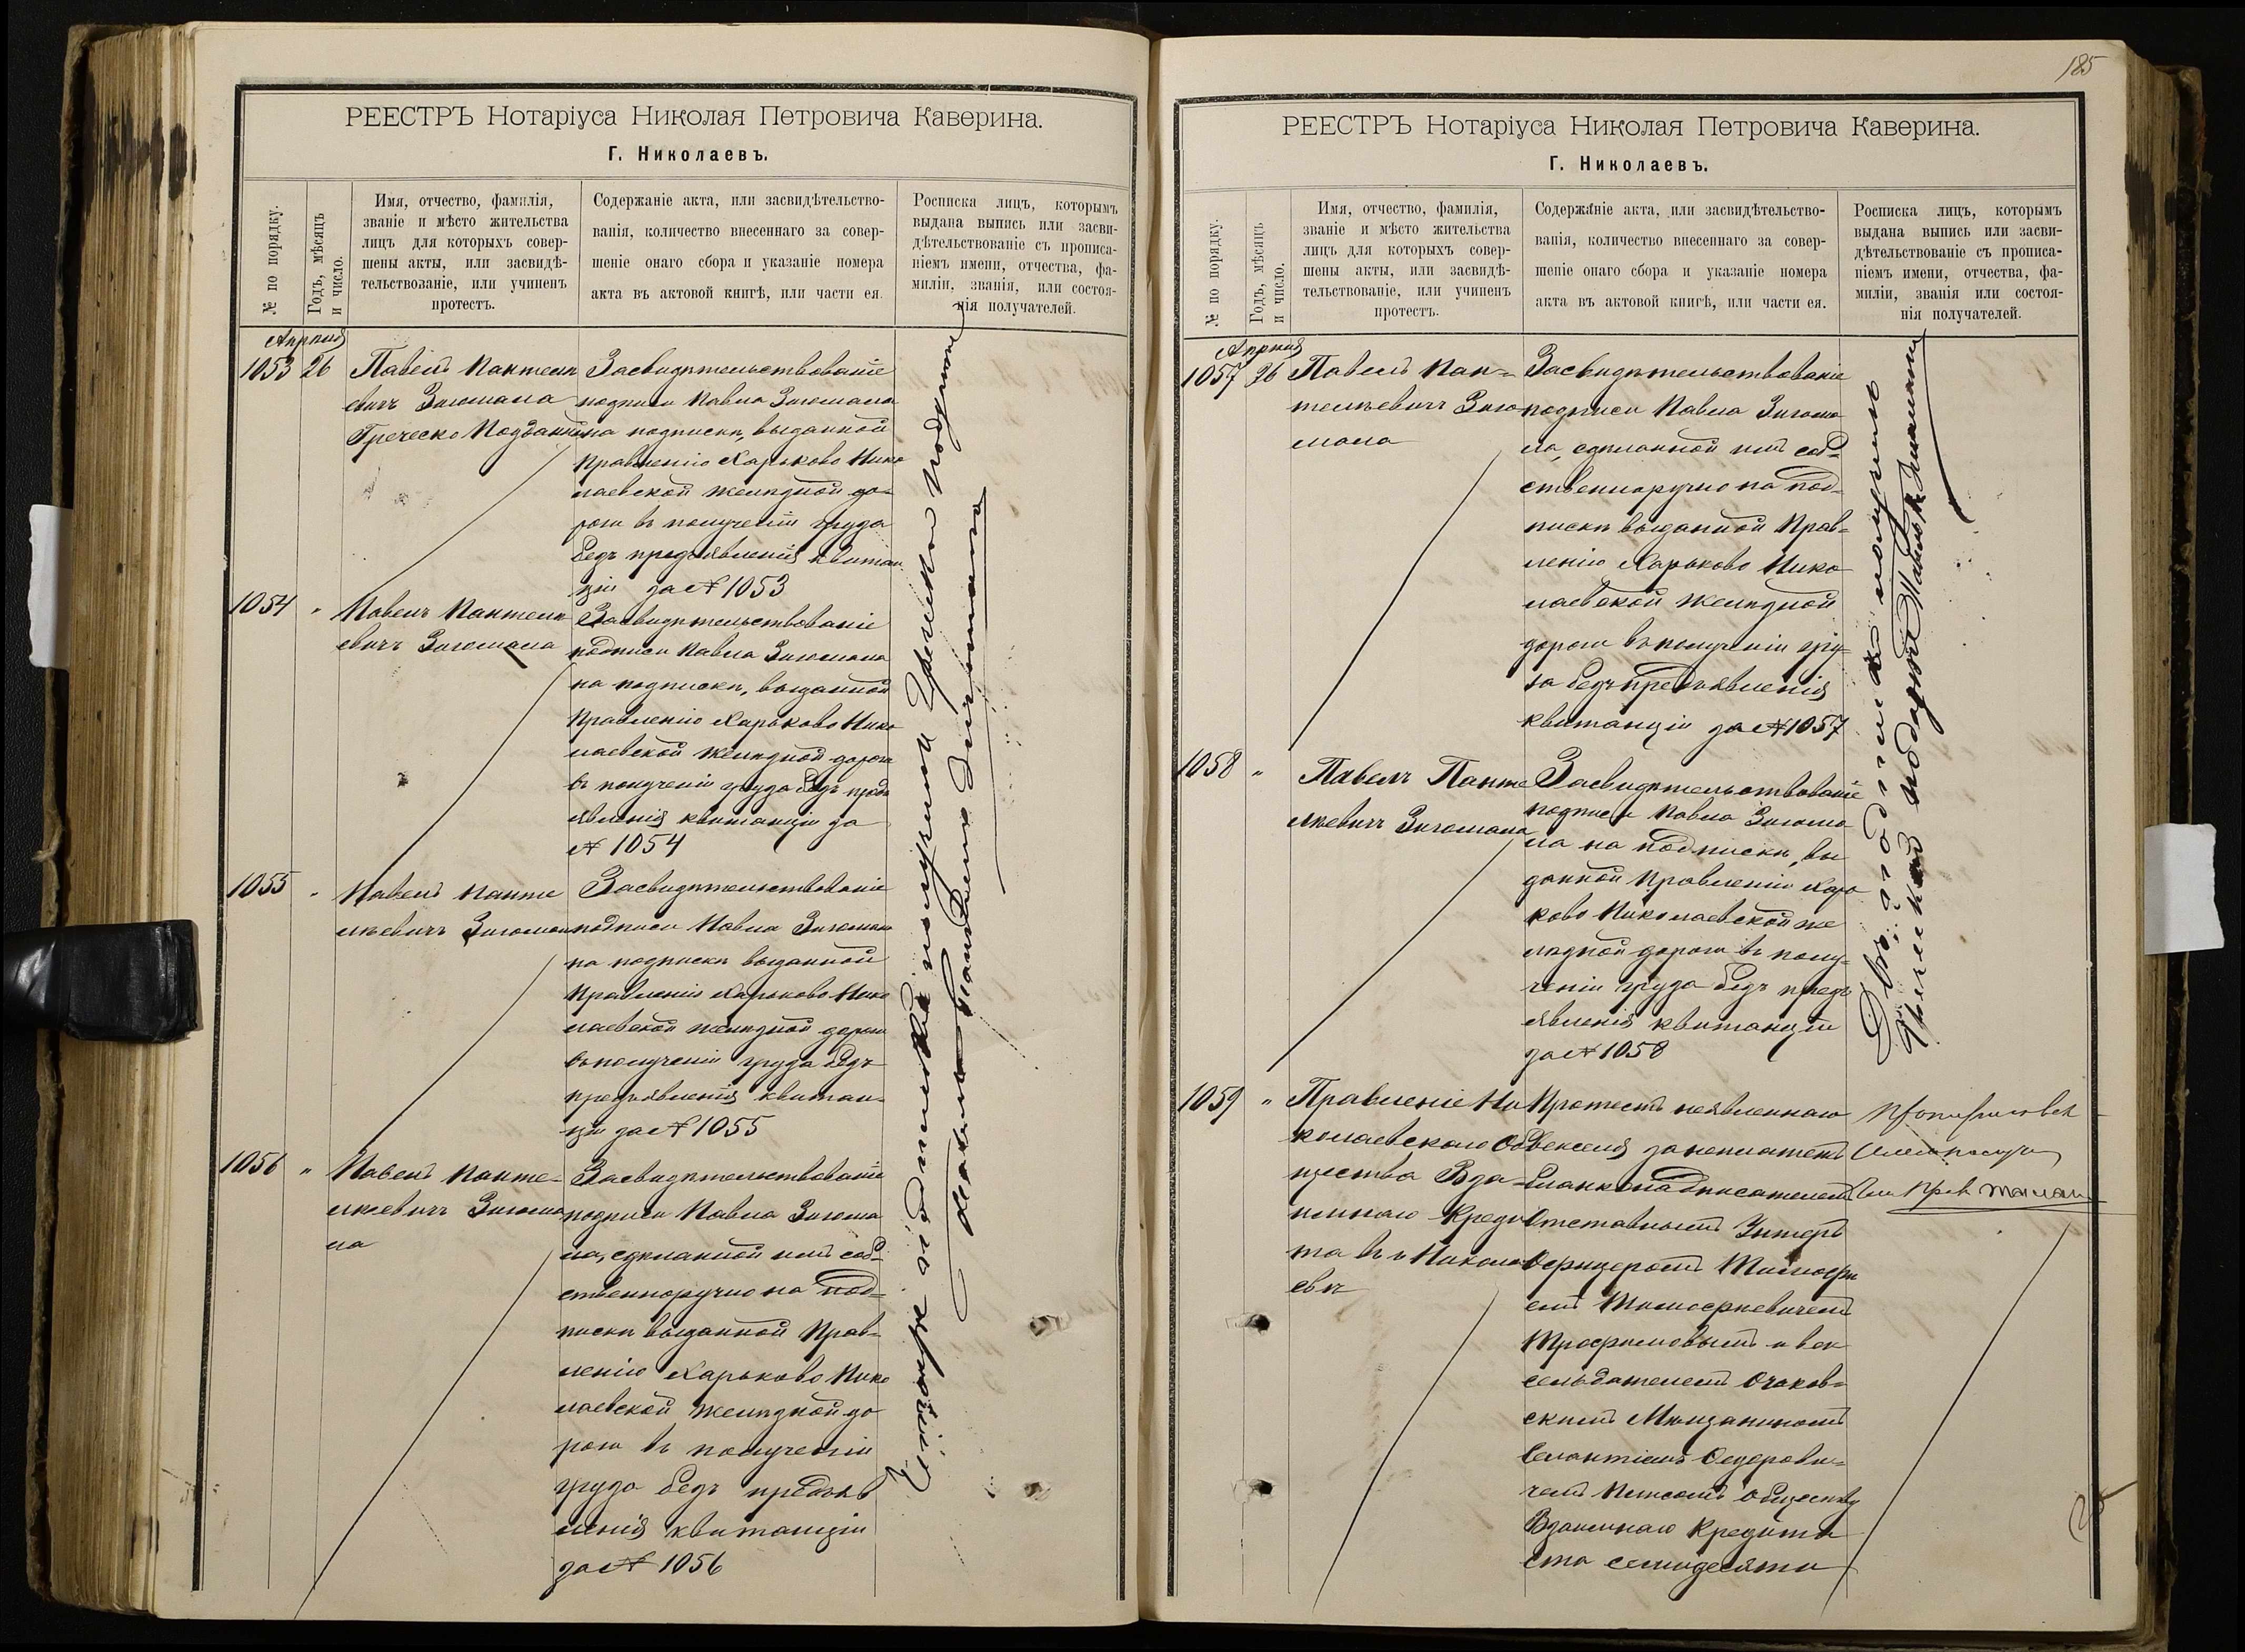 РЕЕСТРЪ Нотаріуса Николая Петровича Каверина.
Г. Николаевъ.
№ по порядку.
Годъ, мѣсяцъ
и число.
Имя, отчество, фамилія,
званіе и мѣсто жительства
лицъ для которыхъ совер-
шены акты, или засвидѣ-
тельствованіе, или учиненъ
протестъ.
Содержаніе акта, или засвидѣтельство-
ванія, количество внесеннаго за совер-
шеніе онаго сбора и указаніе номера
акта въ актовой книгѣ, или части ея.
Росписка лицъ, которымъ
выдана выпись или засви-
дѣтельствованіе съ прописа-
ніемъ имени, отчества, фа-
миліи, званія, или состоя-
нія получателей.
Апрѣля
1053 26
Павелъ Пантелѣ
евичъ Зигомала
Греческо Подданный
Засвидѣтельствованіе
подписи Павла Зигомала
на подпискѣ, выданной
Правленію Харьково Нико
лаевской желѣзной до-
роги въ полученіи груза
безъ предъявленія квитан
ціи за № 1053
1054 "
Павелъ Пантелѣ
евичъ Зигомала
Засвидѣтельствованіе
подписи Павла Зигомала
на подпискѣ, выданной
Правленію Харьково Нико
лаевской желѣзной дороги
въ полученіи груза безъ предъ
явленія квитанціи за
№ 1054
1055 "
Павелъ Панте
лѣевичъ Зигомал
Засвидѣтельствованіе
подписи Павла Зигомала
на подпискѣ выданной
Правленію Харьково Нико
лаевской желѣзной дороги
въ полученіи груза безъ
предъявленія квитан-
ціи за № 1055
1056 "
Павелъ Панте-
лѣевичъ Зигома
ла
Засвидѣтельствованіе
подписи Павла Зигома
ла, сдѣланной имъ соб-
ственноручно на под-
пискѣ выданной Прав-
ленію Харьково Нико
лаевской желѣзной до
роги въ полученіи
груза безъ предъяв
ленія квитанціи
за № 1056
Четыре подписки получилъ Греческій подданный
Павелъ Пантелѣевъ Зигомала
185
РЕЕСТРЪ Нотаріуса Николая Петровича Каверина.
Г. Николаевъ.
№ по порядку.
Годъ, мѣсяцъ
и число.
Имя, отчество, фамилія,
званіе и мѣсто жительства
лицъ для которыхъ совер-
шены акты, или засвидѣ-
тельствованіе, или учиненъ
протестъ.
Содержаніе акта, или засвидѣтельство-
ванія, количество внесеннаго за совер-
шеніе онаго сбора и указаніе номера
акта въ актовой книгѣ, или части ея.
Росписка лицъ, которымъ
выдана выпись или засви-
дѣтельствованіе съ прописа-
ніемъ имени, отчества, фа-
миліи, званія или состоя-
нія получателей.
Апрѣля
1057 26
Павелъ Пан-
телѣевичъ Зиго
мала
Засвидѣтельствованіе
подписи Павла Зигома
ла, сдѣланной имъ соб-
ственноручно на под-
пискѣ выданной Прав-
ленію Харьково Нико
лаевской желѣзной
дороги въ полученіи гру-
за безъ предъявленія
квитанціи за № 1057
1058 "
Павелъ Панте
лѣевичъ Зигомала
Засвидѣтельствованіе
подписи Павла Зигома
ла на подпискѣ, вы
данной Правленію Харь
ково Николаевской же
лѣзной дороги въ полу-
ченіи груза безъ предъ
явленія квитанціи
за № 1058
Двѣ подписки получилъ
Греческій подданный Павелъ Зигомала
1059 "
Правленіе Ни
колаевскаго Об
щества Вза-
имнаго Креди
та въ г. Никола
евѣ
Протестъ неявленнаго
векселя за неплатежъ
бланконадписателемъ
Отставнымъ Унтеръ
Офицеромъ Тимофѣ
емъ Тимофѣевичемъ
Трофимовымъ и век
селедателемъ Очаков-
скимъ Мѣщаниномъ
Федорови-
чемъ Обществу
Взаимнаго Кредита
ста семидесяти